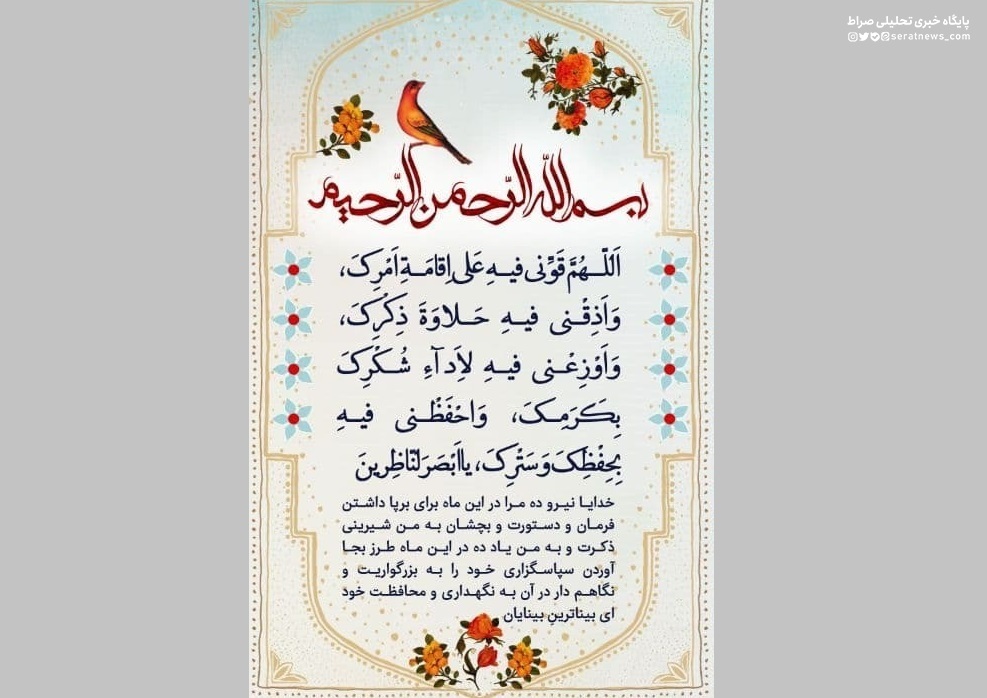 پایگاه خبری تحلیلی صراط
seratnews_com
بسم الله الرّحمن الرّحیم
اَللّهُمَّ قَوِّنی فیهِ عَلی اِقامَةِ اَمْرِکَ،
وَاَذِقْنی فیهِ حَلاوَةَ ذِکْرِکَ،
وَاَوْزِعْنی فیهِ لاَِدآءِ شُکْرِکَ
بِکَرَمِکَ، وَاحْفَظْنی فیهِ
بِحِفْظِکَ وَسَتْرِکَ، یا اَبْصَرَ النّاظِرینَ
خدایا نیرو ده مرا در این ماه برای برپا داشتن
فرمان و دستورت و بچشان به من شیرینی
ذکرت و به من یاد ده در این ماه طرز بجا
آوردن سپاسگزاری خود را به بزرگواریت و
نگاهم دار در آن به نگهداری و محافظت خود
ای بیناترینِ بینایان